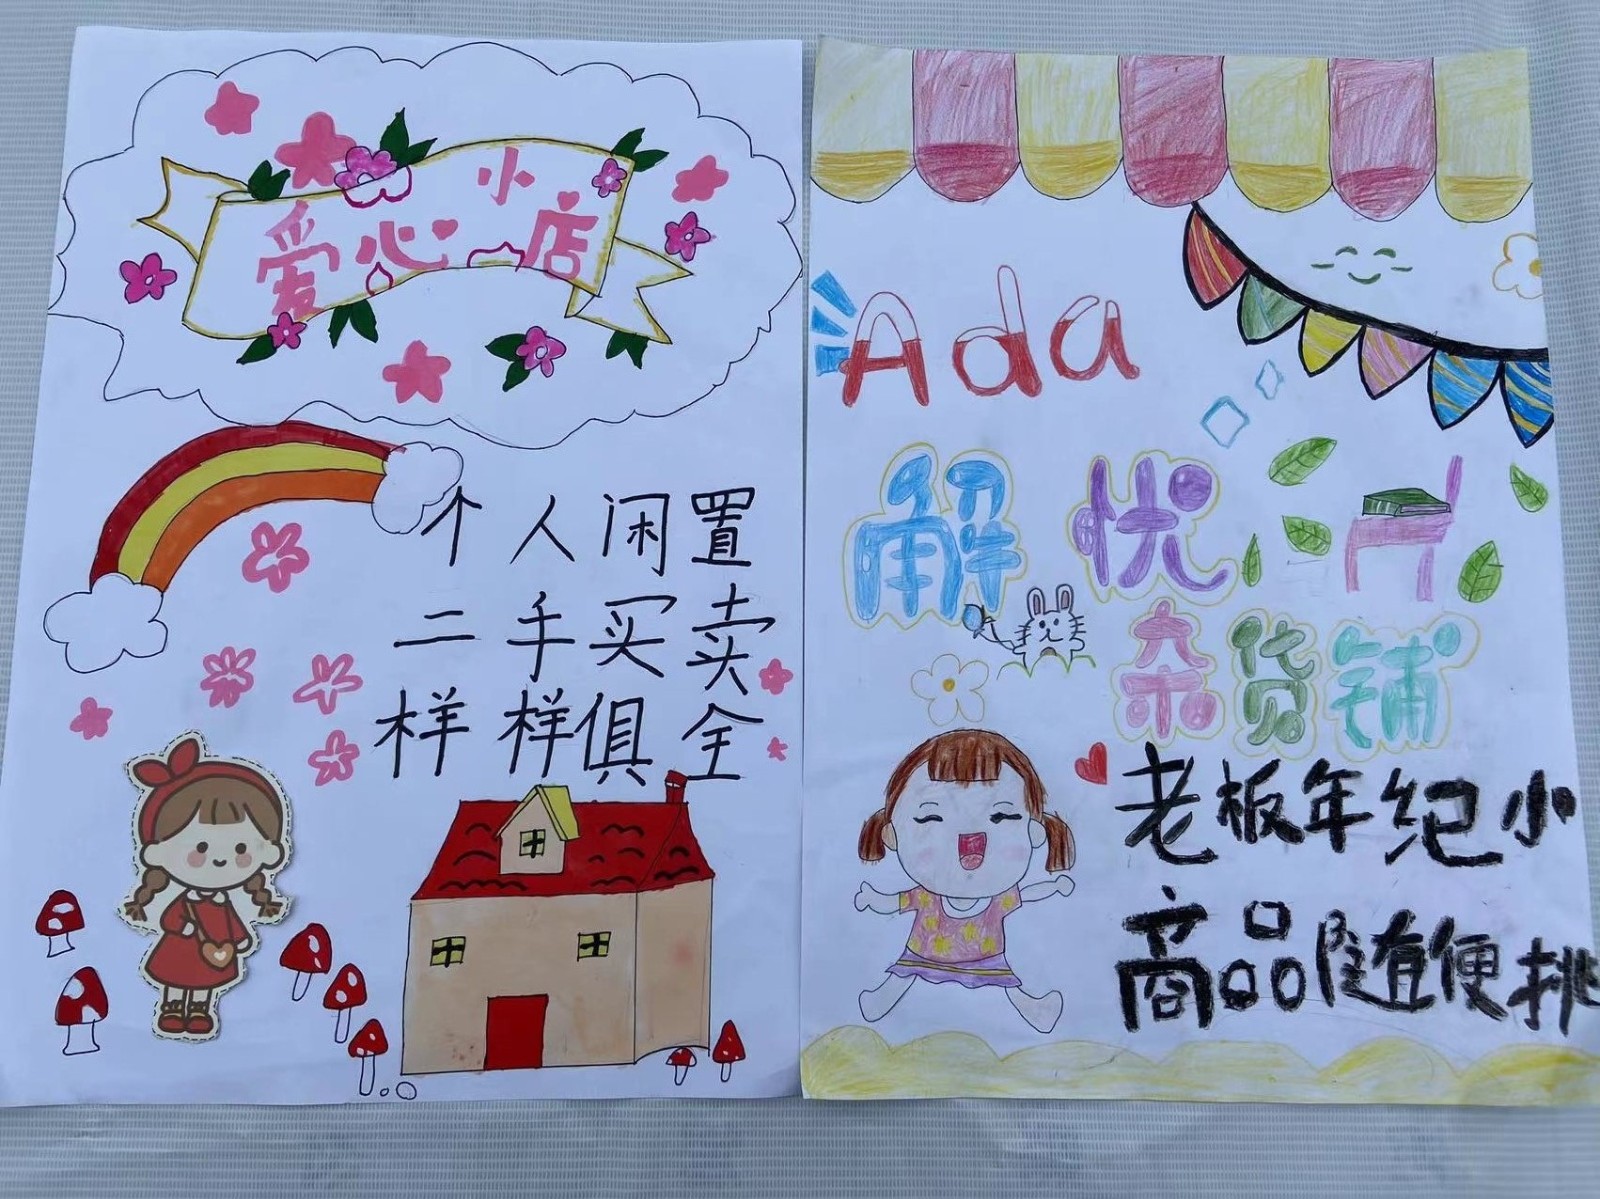 爱心小店
个人闲置
二手买卖
样样俱全
Ada
解忧
杂货铺
老板年纪小
商品随便挑